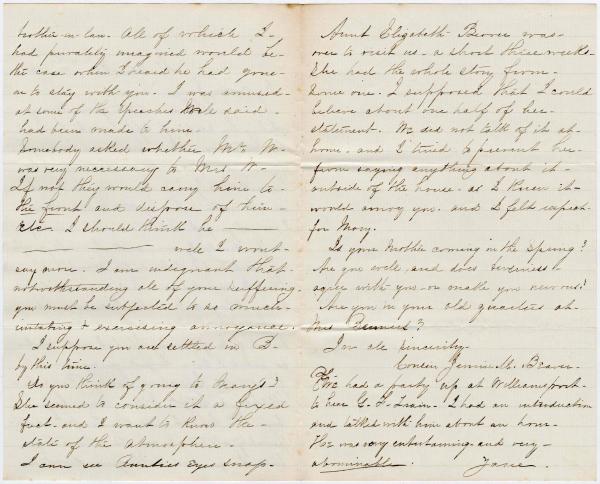 brother-in-law. All of which I-
had privately imagined would be-
the case when I heard he had gone-
on to stay with you. I was amused-
at some of the speeches said-
had been made to him-
Somebody asked whether Mr. W-
was very necessary to Mrs W-
If not they would carry him to-
the front and dispose of him-
Etc. I should think he
well I wont-
say more. I am indignant that-
notwithstanding all of your suffering.
you must be subjected to so much-
irritating & excessing annoyance.
I suppose you are settled in B-
by this time.
do you think of going to ?
She seemed to consider it a fixed
fact- and I want to know the-
state of the atmosphere.
I can see Aunties Eyes snap.
Aunt Elizabeth Beaver was-
over to visit us- a short three weeks-
She had the whole story from-
some one. I supposed that I could
believe about one half of her-
statement. We did not talk of it at-
home. and I tried to prevent her-
from saying anything about it-
outside of the house. as I knew it-
would annoy you. and I felt
for Mary.
Is your Mother coming in the Spring?
Are you well, and does business-
agree with you- or make you nervous?
Are you in your old quarters at-
Mrs ?
In all sincerity-
Cousin Jennie M. Beaver-
We had a party up at Williamsport-
to hear G. F. Train- I had an introduction
and talked with him about an hour-
He was very entertaining- and very-
abominable.